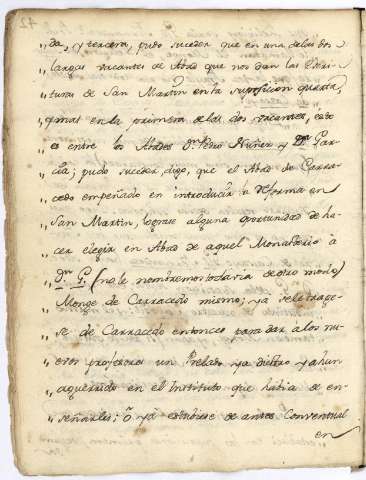 „ da, y tercera, pudo suceder que en una delas dos
„ largas vacantes de Abad que nos dan las Escri-
„ turas de San Martin en la suposicion quarta,
„ y mas en la primera de las dos vacantes, esto
„ es entre los Abades Dn. Pedro Nuñez y Dn. Gar-
„ cia; pudo suceder digo, que el Abad de Carra-
„ cedo empeñado en introducir la Reforma en
„ San Martin, lograse alguna oportunidad de ha-
„ cer elegir en Abad de aquel Monasterio a
„ Dn. G. (no le nombremos todavia de otro modo)
„ Monge de Carracedo mismo; ya se le trage-
„ se de Carracedo entonces para dar a los nu-
„ evos profesores un Prelado ya diestro y ahun
„ aguerrido en el Instituto que habia de en-
„ señarles; ò ya estubiese de antes Conventual
en